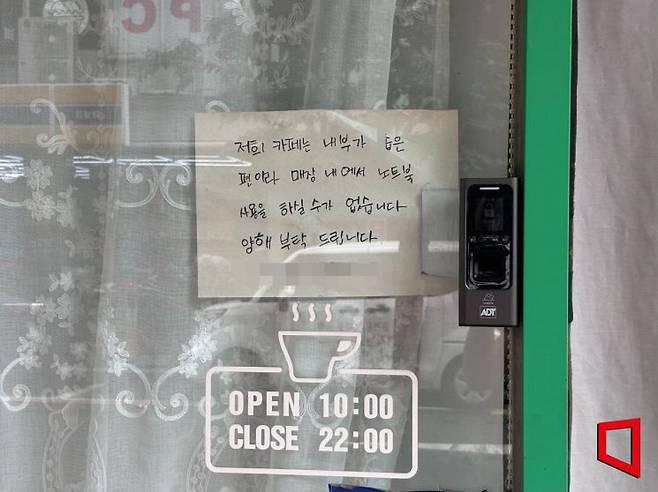 PC
저희 카페는 내부가 좁은
편이라 매장 내에서 노트북
사용을 하실 수가 없습니다
양해 부탁 드립니다
ADT
OPEN 10:00
CLOSE 22:00